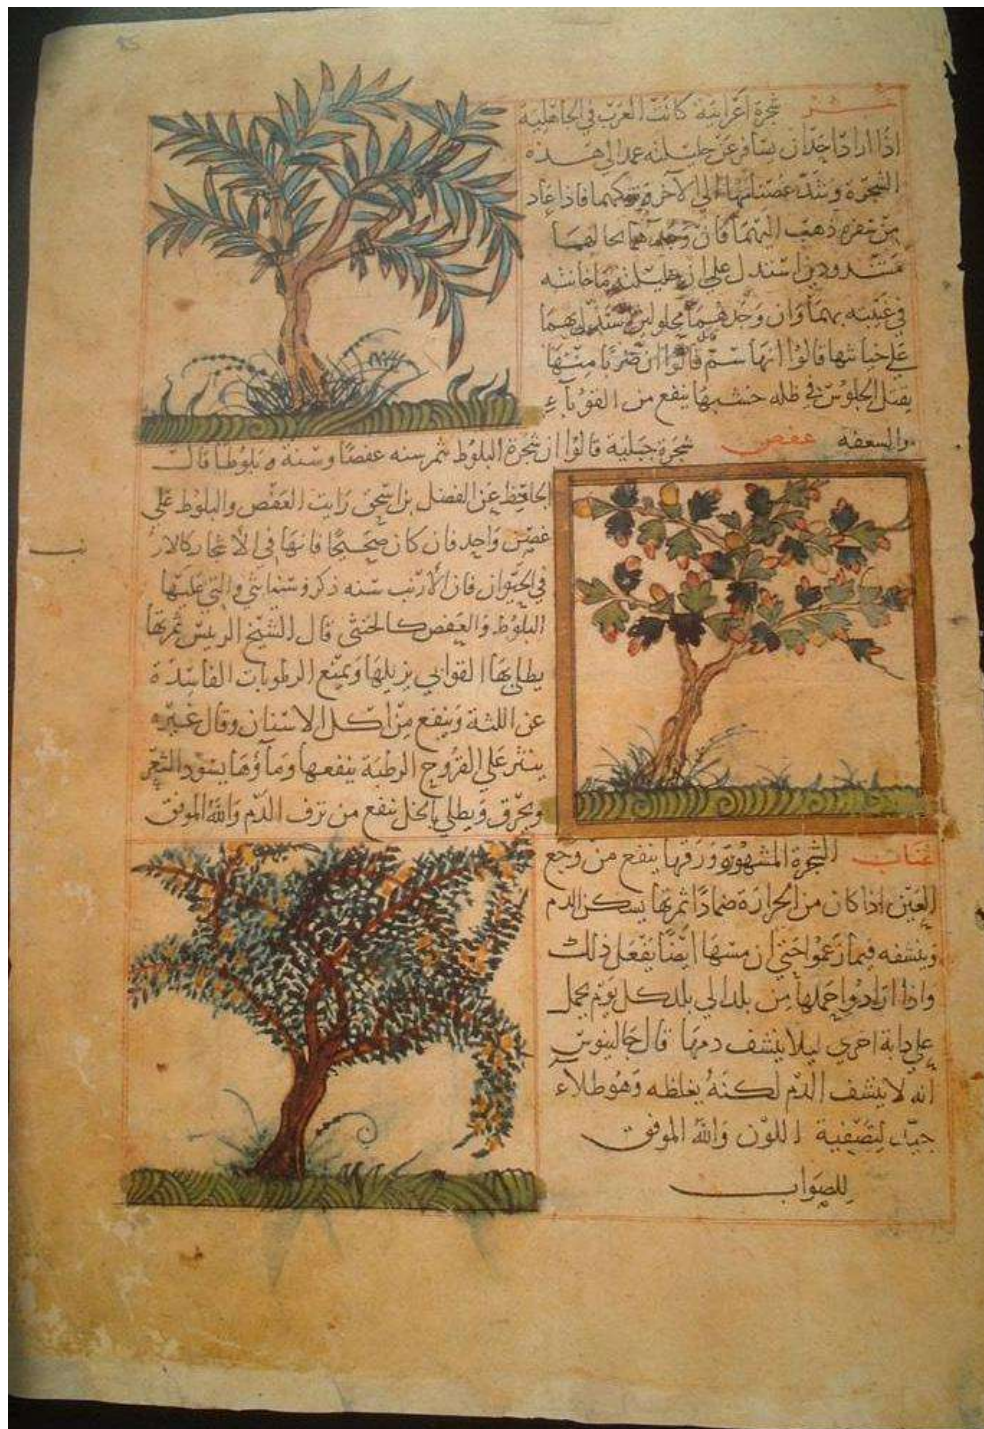 عشر شجرة اعرابية كانت العرب في الجاهلية
اذا اراد احد ان يسافر عن حليلته عمد الي هذه
الشجرة وشد غصنا منها الي الآخر وتركهما فاذا عاد
من سفره ذهب اليهما فان وجدهما بحالهما
مشدودين استدل علي ان حليلته ما خانته
في غيبته بهما وان وجدهما محلولين استدل بهما
علي خيانتها قالوا انها سم قالوا ان ضربا منها
يقتل الجلوس في ظله خشبها ينفع من القوبآء
والسعفه عفص شجرة جبلية قالوا ان شجرة البلوط تثمر سنه عفصا وسنة بلوطا قال
الجاحظ عن الفضل بن اسحق رايت العفص والبلوط علي
غصن واحد فان كان صحيحا فانها في الاشجار كالارنب
في الحيوان فان الارنب سنه ذكر وسنة انثي والتي عليها
البلوط والعفص كالخنثي قال الشيخ الرئيس ثمرتها
يطلي بها القوابي يزيلها ويمنع الرطوبات الفاسدة
عن اللثة وينفع من اكل الاسنان وقال غيره
ينثر علي القروح الرطبة ينفعها وماؤها يسود الشعر
ويحرق ويطلي بالخل ينفع من نزف الدم والله الموفق
عناب الشجرة المشهورة ورقها ينفع من وجع
العين اذا كان من الحرارة ضمادا ثمرتها يسكن الدم
وينشفه فيما زعموا حتي ان مسها ايضا يفعل ذلك
واذا ارادوا حملها من بلد الي بلد كل يوم يحمل
علي دابة اخري ليلا ينشف دمها قال جالينوس
انه لا ينشف الدم لكنه يغلظه وهو طلاء
جيد لتصفية اللون والله الموفق
للصواب